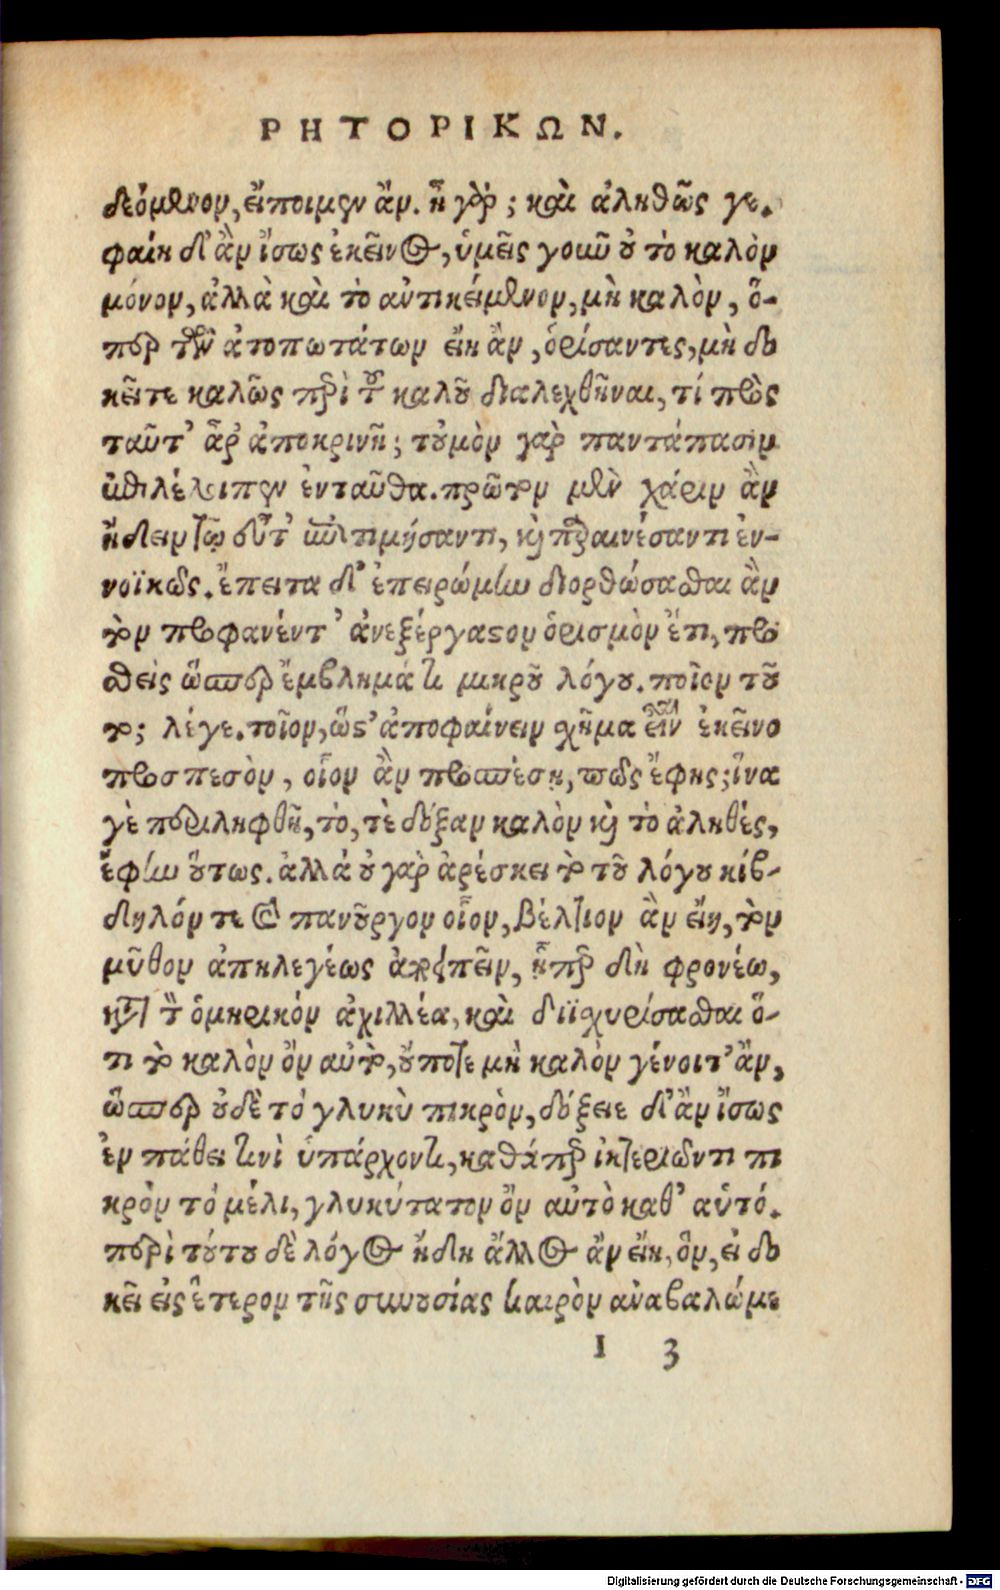 ΡΗΤΟΡΙΚΩΝ.
δεόμενον, εἴποιμεν ἄν. ἦ γὰρ; καὶ ἀληθῶς γε.
φαίη δ' ἂν ἴσως ἐκεῖνος, ὑμεῖς γοιῦ οὐ τὸ καλὸν
μόνον, ἀλλὰ καὶ τὸ ἀντικείμενον, μὴ καλὸν, ὅ-
περ τῶν ἀτοπωτάτων εἴη ἂν, ὁρίσαντες, μὴ δο
κεῖτε καλῶς περὶ τοῦ καλοῦ διαλεχθῆναι, τί πρὸς
ταῦτ' ἆρ' ἀποκρινῇ; τοὐμὸν γὰρ παντάπασιν
ἐπιλέλοιπεν ἐνταῦθα. πρῶτον μὲν χάριν ἂν
ᾔδειν τῷ ἐπιτιμήσαντι, καὶ παραινέσαντι ἐν-
νοϊκῶς. ἔπειτα δ' ἐπειρώμην διορθώσασθαι ἂν
τὸν προφανέντ' ἀνεξέργαστον ὁρισμὸν ἔτι, προ
σθεὶς ὥσπερ ἔμβλημά τι μικροῦ λόγου. ποῖον τοῦ
το; λέγε. ποῖον, ὥστ' ἀποφαίνειν χῆμα εἶναι ἐκεῖνο
προσπεσὸν, οἷον ἂν προσπέσῃ, πῶς ἔφης; ἵνα
γὲ περιληφθῇ, τό, τὲ δόξαν καλὸν καὶ τὸ ἀληθές,
ἔφην οὕτως. ἀλλά οὐ γὰρ ἀρέσκει τὸ τοῦ λόγου κίβ-
δηλόν τε καὶ πανοῦργον οἷον, βέλτιον ἂν εἴη, τὸν
μῦθον ἀπηλεγέως ἀποειπεῖν, ᾗπερ δὴ φρονέω,
κατὰ τὸν ὁμηρικόν ἀχιλλέα, καὶ διϊσχυρίσασθαι ὅ-
τι τὸ καλὸν ὂν αὐτὸ, οὔποτε μὴ καλὸν γένοιτ' ἂν,
ὥσπερ οὐδὲ τὸ γλυκὺ πικρὸν, δόξειε δ' ἂν ἴσως
ἐν πάθει τινὶ ὑπάρχοντι, καθάπερ ἰκτεριῶντι πι
κρὸν τὸ μέλι, γλυκύτατον ὂν αὐτὸ καθ' αὑτό.
περὶ τούτου δὲ λόγος ἤδη ἄλλος ἂν εἴη, ὃν, εἰ δο
κεῖ εἰς ἕτερον τῆς συνουσίας καιρὸν ἀναβαλώμε
I 3
Digitalisierung gefördert durch die Deutsche Forschungsgemeinschaft - DFG